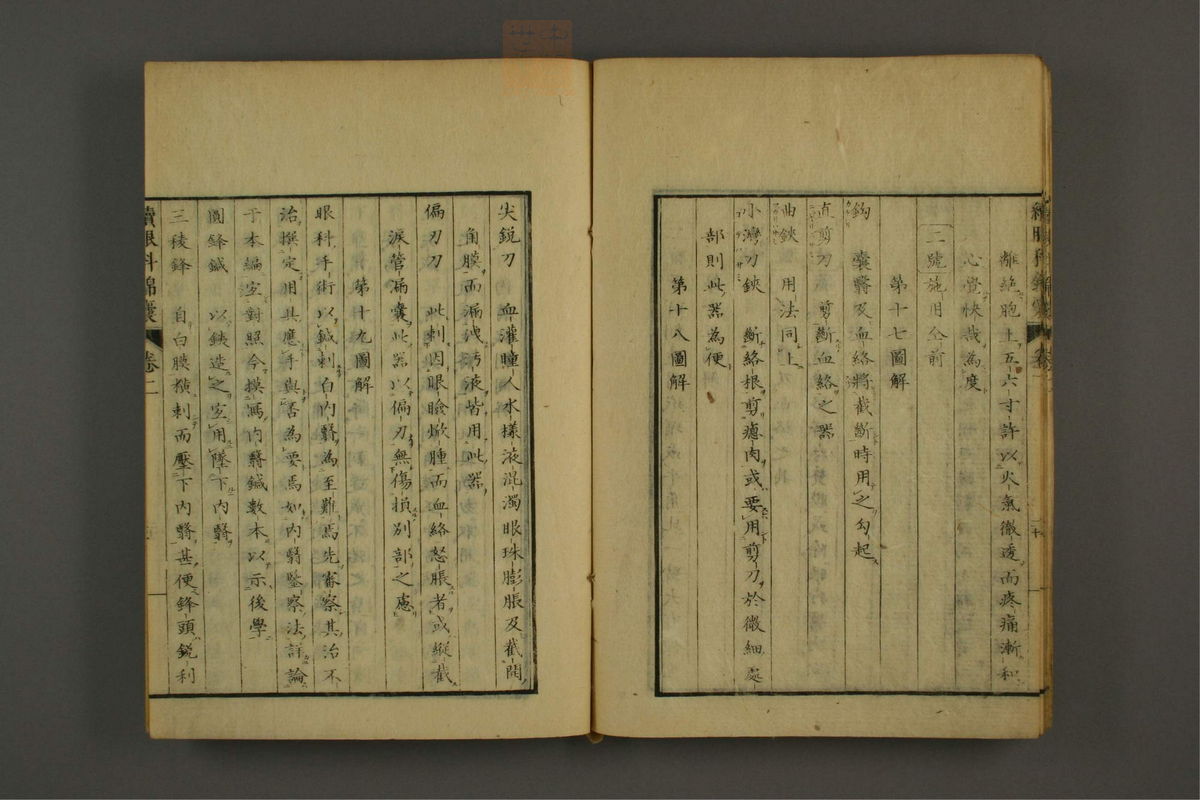 離絶胞上五六寸許以火氣徹透而疼痛漸和
心覺快哉為度
三號施用仝前
第十七圖解
鈎　囊瞖及血絡將截斷時用之勾起
直剪刀　剪斷血絡之器
曲鋏　用法同上
小灣刀鋏　斷絡根剪瘜肉或要用剪刀於微細處
部則此器為便
第十八圖解
尖銳刀　血灌瞳人水樣液混濁眼珠膨脹及截開
角膜而漏洩昞液皆用此器
偏刃刀　此刺因眼瞼焮腫而血絡怒脹者或縱截
淚管漏囊此器以偏刃無傷損別部之慮
第十九圖解
眼科手術以鍼刺白內瞖為至難焉先審察其治不
治撰定用其應手與否為要焉如內瞖鑒察法詳論
于本編宜對照今摸寫內瞖鍼數本以示後學
圓鋒鍼　以鐵造之宜用墜下內瞖
三稜鋒　自白膜橫刺而壓下內瞖甚便鋒頭銳利
續眼科錦囊　卷二